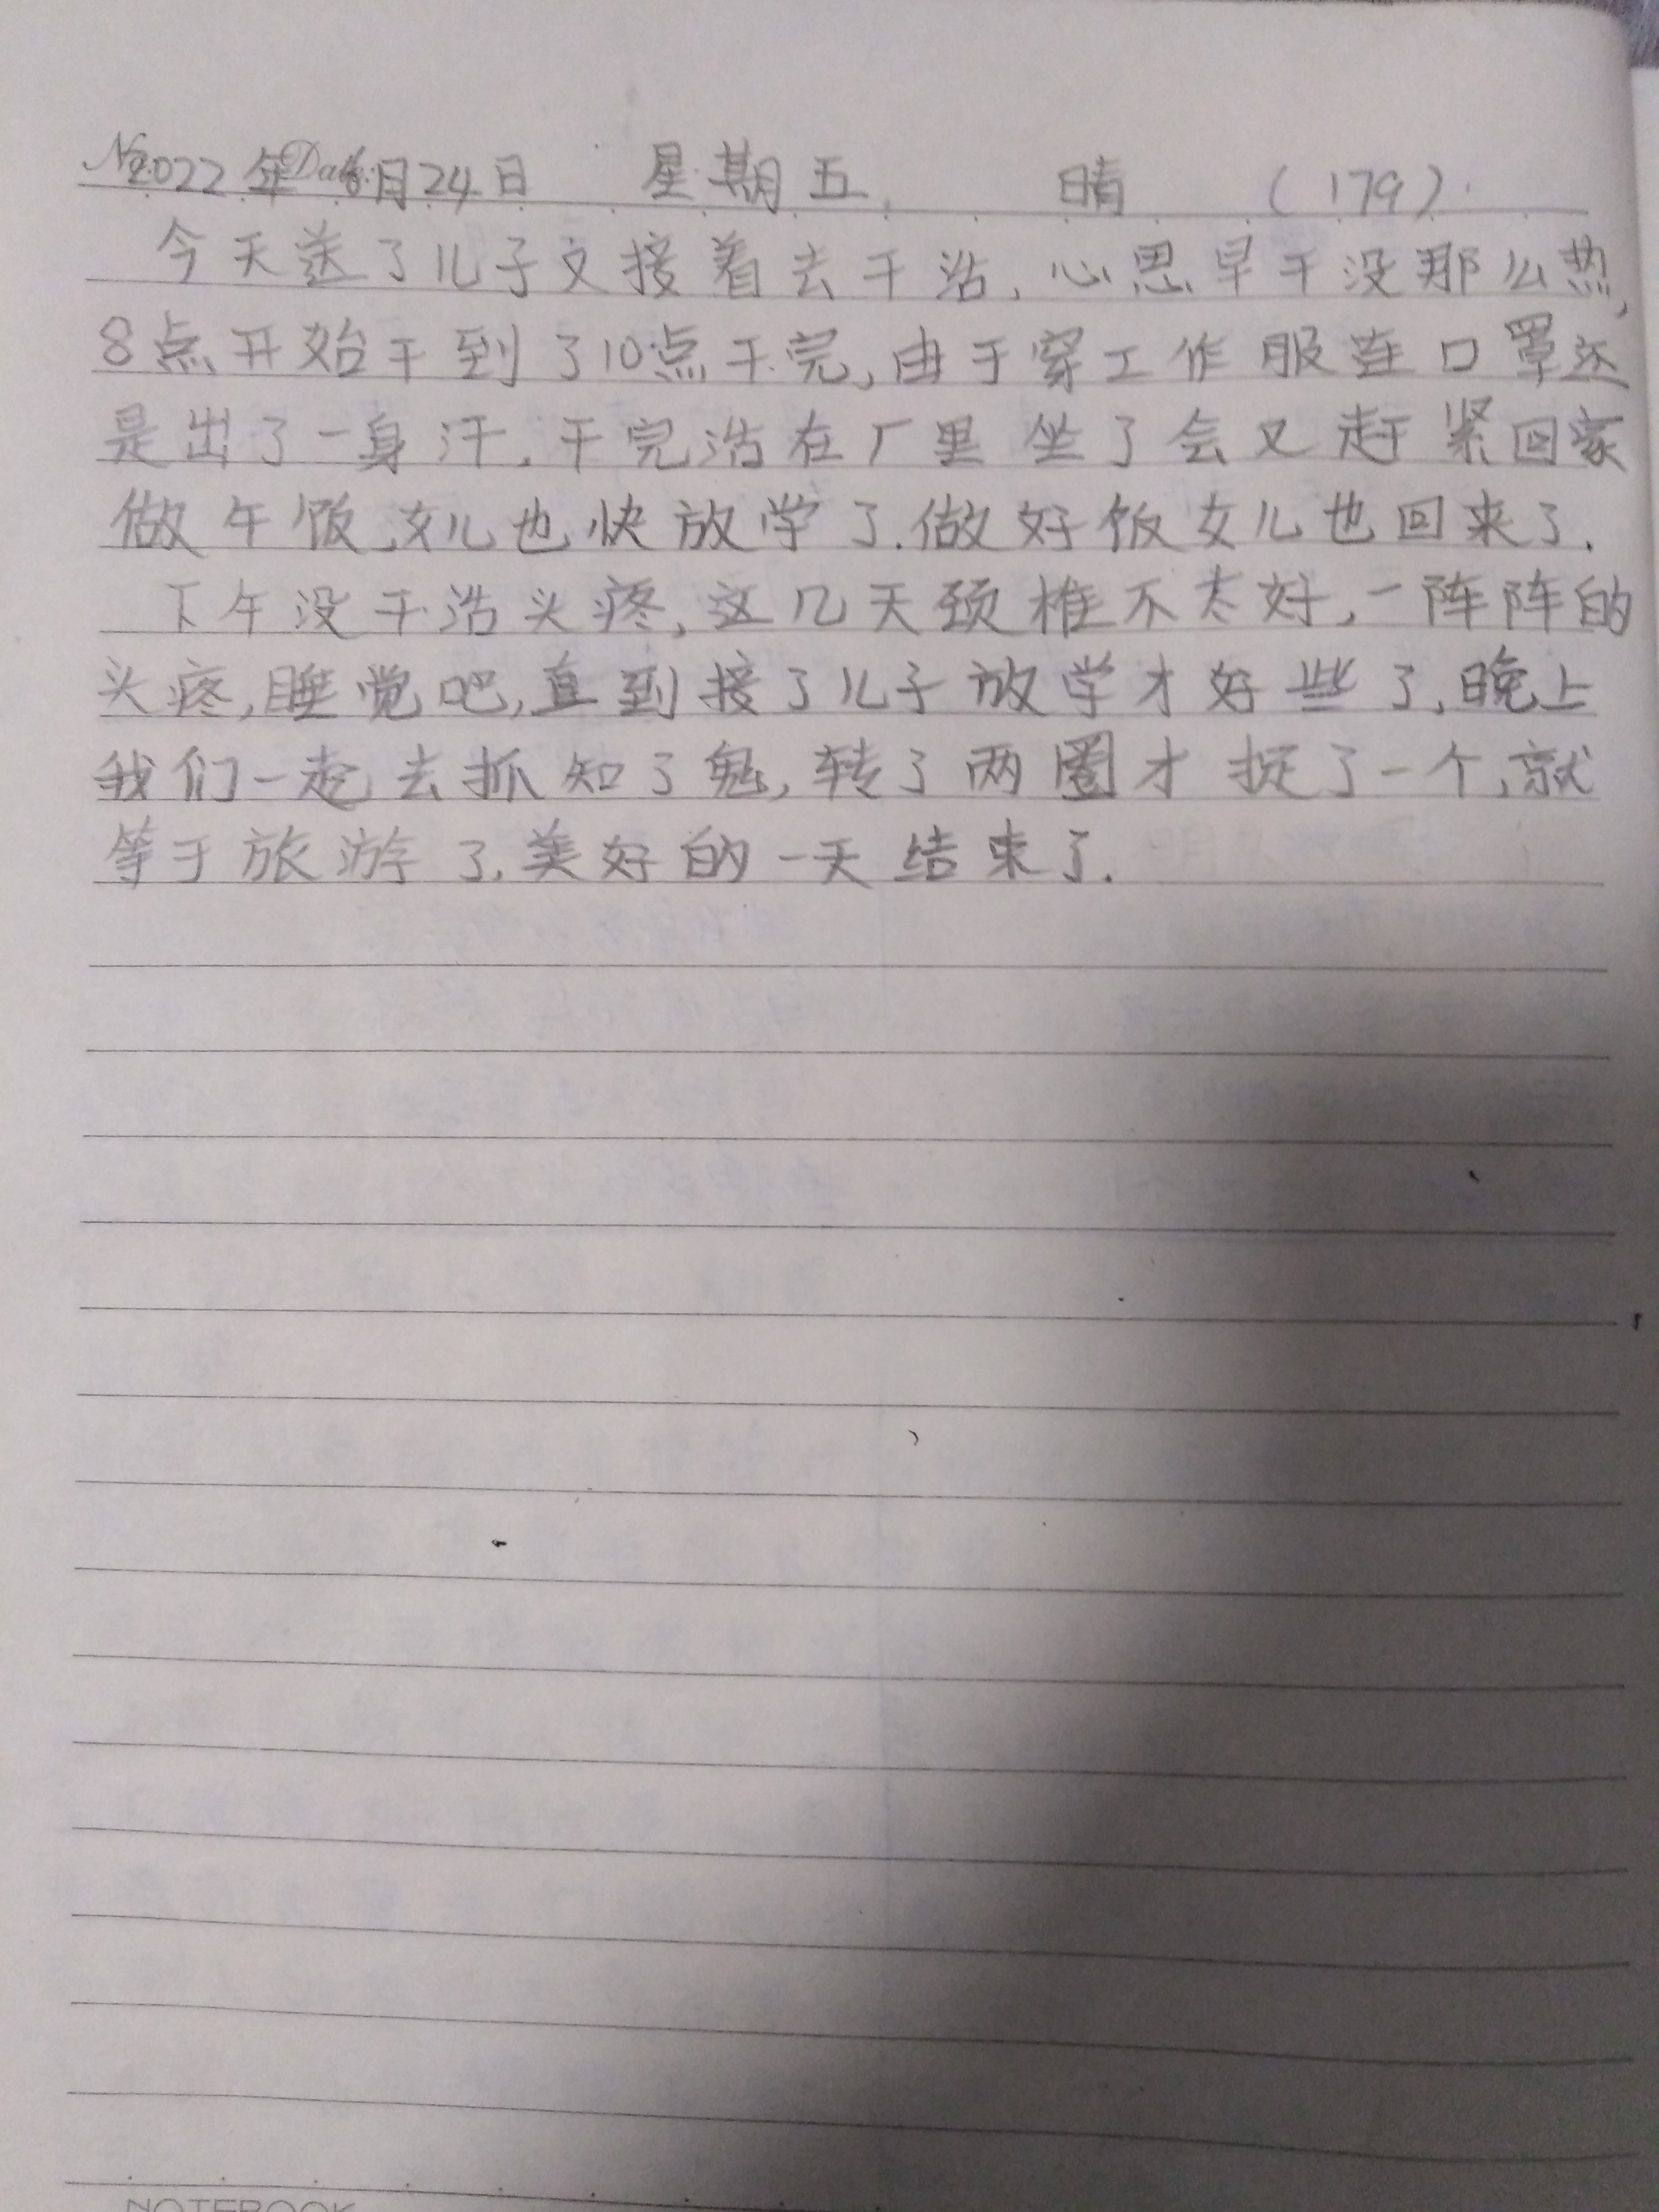 No. Date.
2022年6月24日 星期五 晴 (179)
今天送了儿子又接着去干活,心思早干没那么热,
8点开始干到了10点干完,由于穿工作服连口罩还
是出了一身汗.干完活在厂里坐了会又赶紧回家
做午饭,女儿也快放学了.做好饭女儿也回来了.
下午没干活头疼,这几天颈椎不太好,一阵阵的
头疼,睡觉吧,直到接了儿子放学才好些了,晚上
我们一起去抓知了龟,转了两圈才捉了一个,就
等于旅游了.美好的一天结束了.
NOTEBOOK